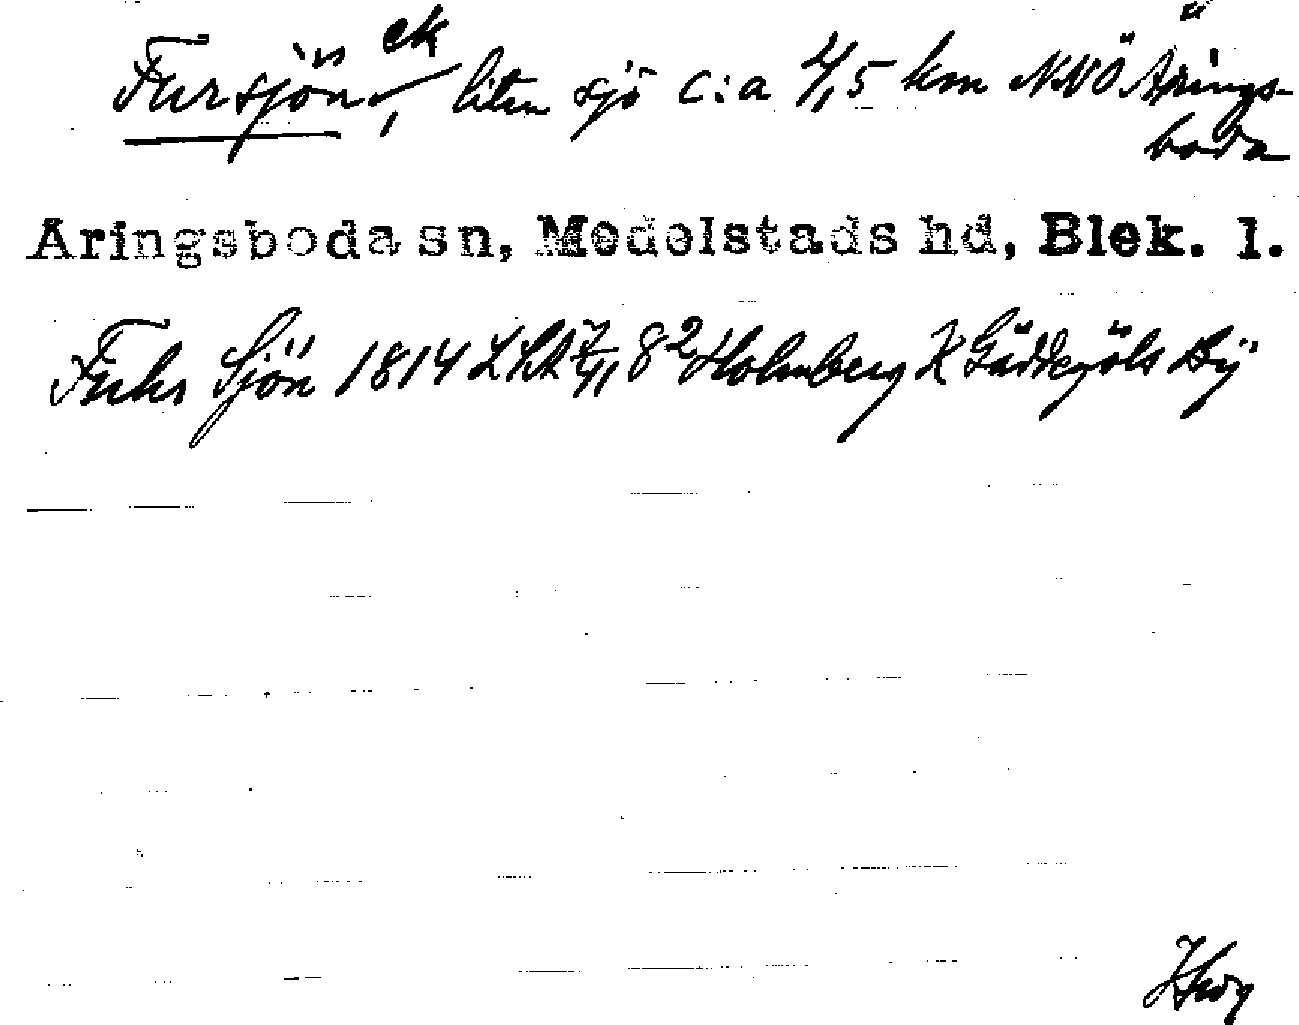 Fursjön, ek liten sjö c:a 4,5 km NNÖÄrings-
boda
Aringsboda sn, Medelstads hd, Blek. l.
Fuhr Sjön 1814 LSA 8² Holmberg K Gäddegöls By